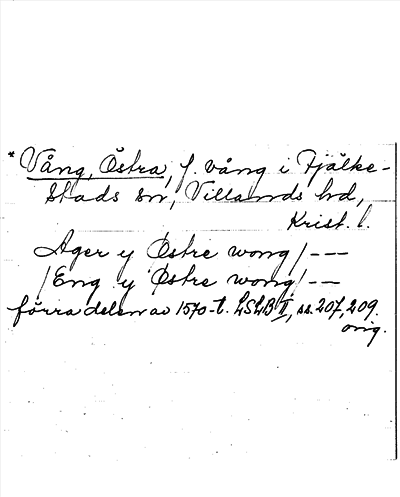 * Vång, Östra, f. vång i Fjälke-
stads sn, Villands hd,
Krist. l.
Ager y Østre wong/---
/Eng y Østre wong/---
förra delen av 1570-t. LSLB II, ss. 207, 209.
orig.